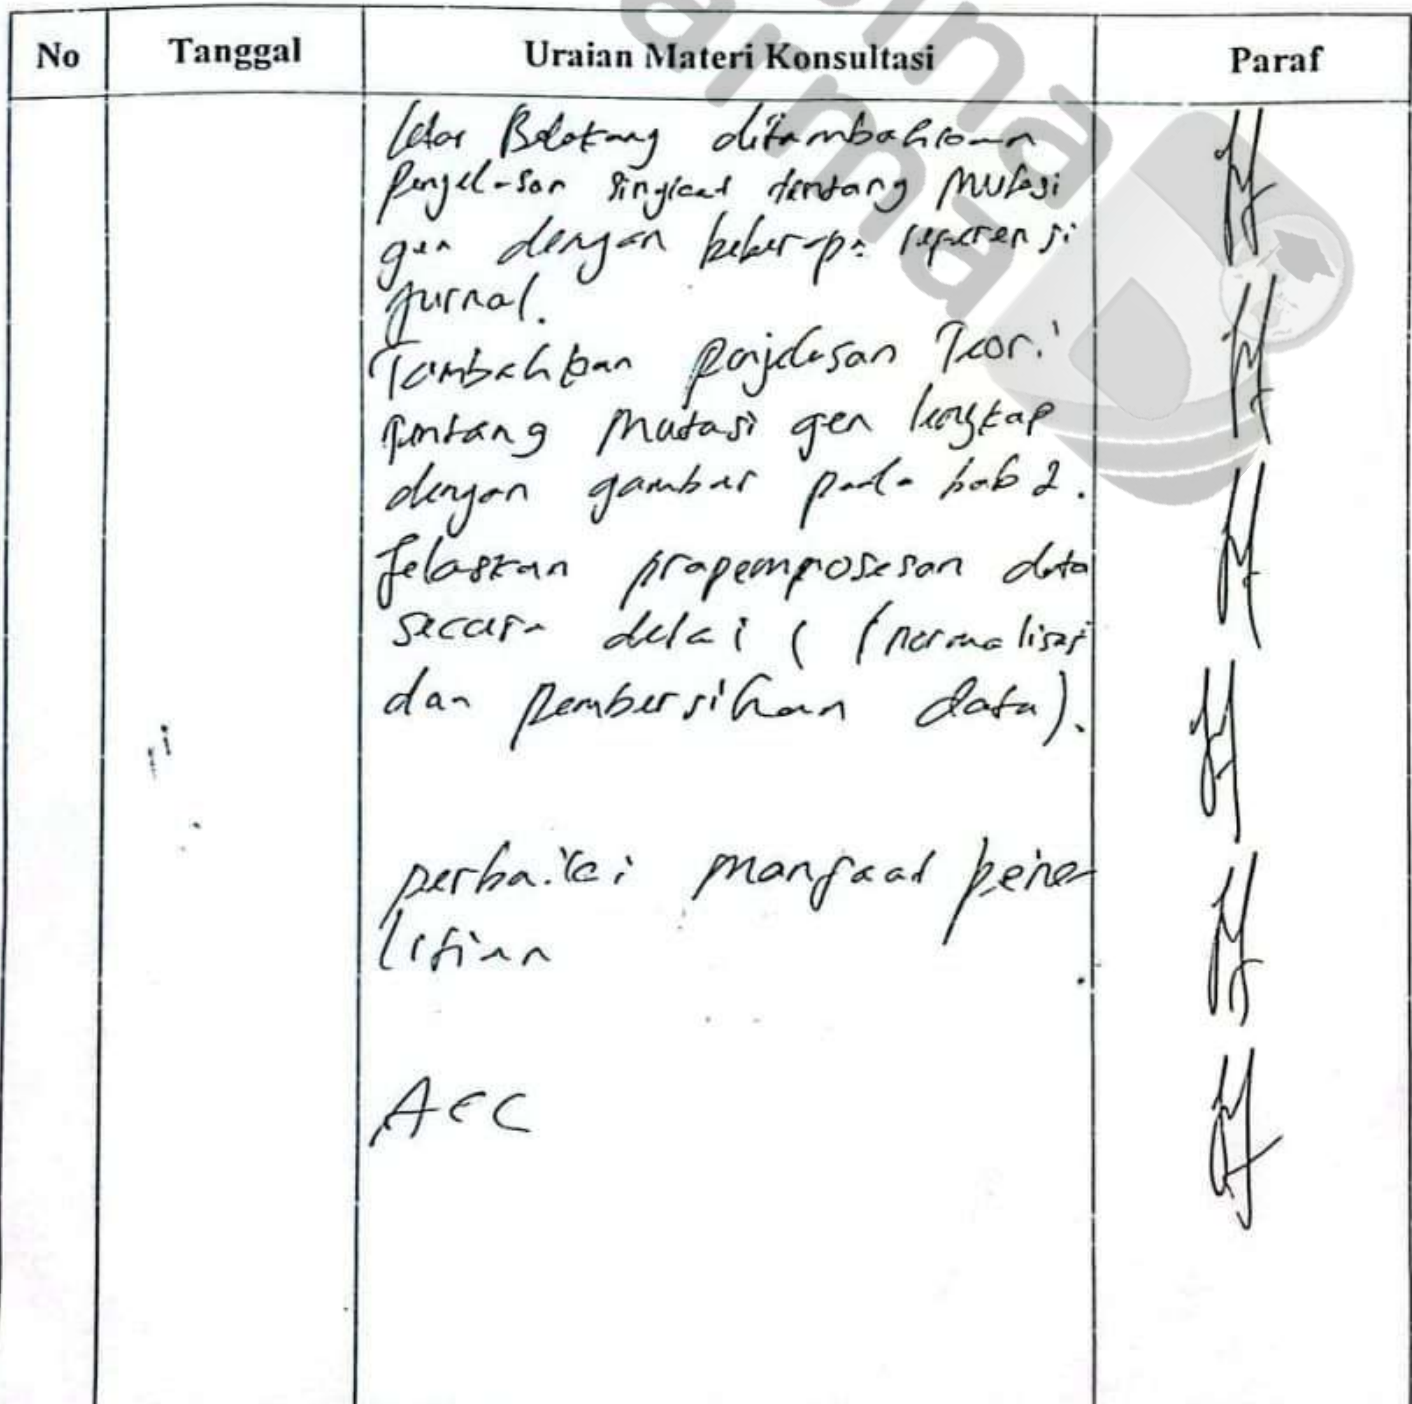 No Tanggal Uraian Materi Konsultasi Paraf
Latar Belakang ditambahkan
Penjelasan singkat tentang Mutasi
gen dengan beberapa referensi
Jurnal.
Tambahkan penjelasan Teori
tentang Mutasi gen lengkap
dengan gambar pada bab 2.
Jelaskan prapemprosesan data
secara detail (normalisasi
dan Pembersihan data).
perbaiki manfaat pene
litian
ACC